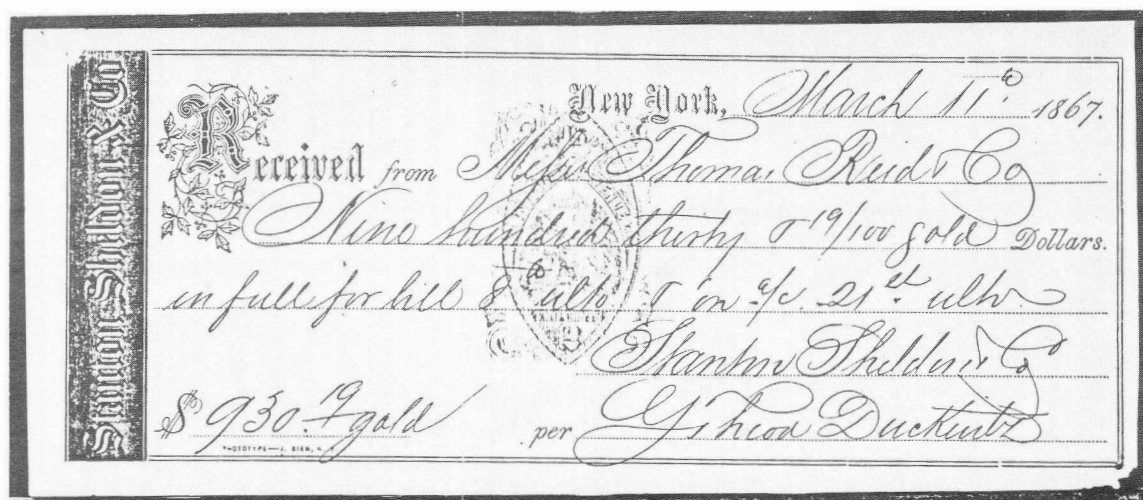 Stanton Sheldon & Co
New York, March 11th 1867.
Received from Messrs Thomas Reid & Co
Nine hundred thirty & 19/100 gold Dollars.
in full for bill 8th ulto & on a/c. 21st ulto
Stanton Sheldon & Co
$930.19 gold per
PHOTOTYPE—J. BIEN, N.Y.